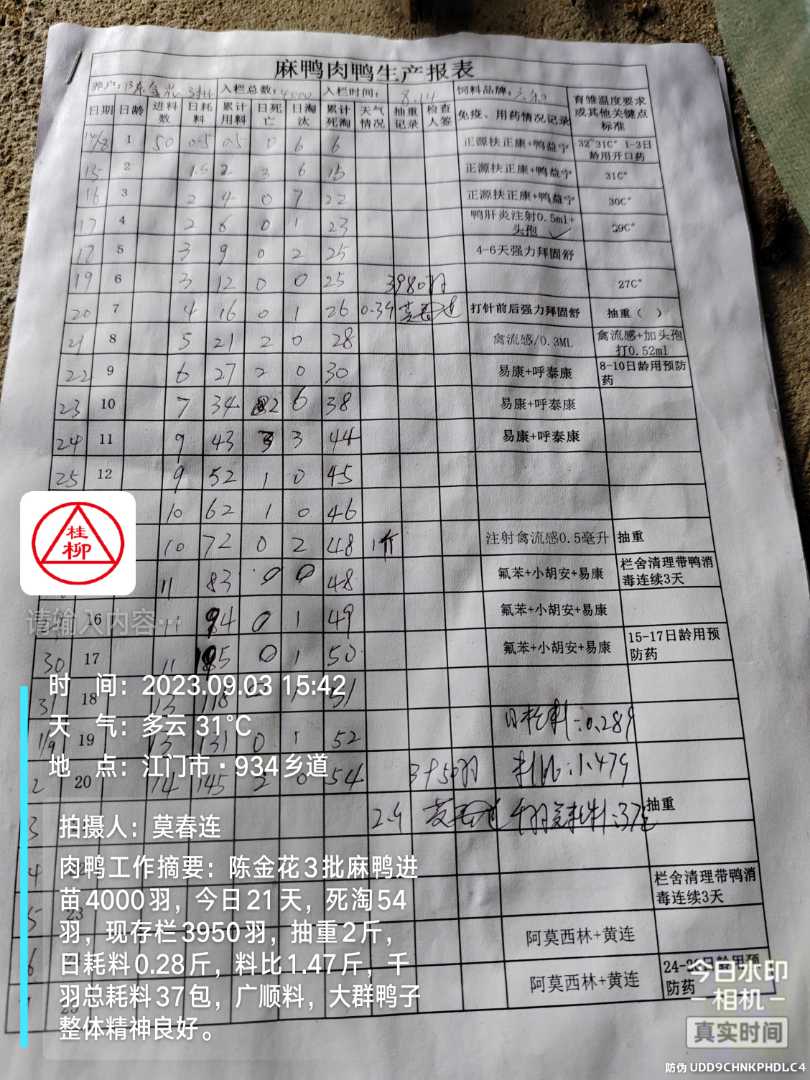 麻鸭肉鸭生产报表
养户: 陈金花 3批 入栏总数: 4000 入栏时间: 8.14 饲料品牌:
日期 日龄 进料数 日耗料 累计用料 日死亡 日淘汰 累计死淘 天气情况 抽重记录 检查人签 免疫、用药情况记录 育雏温度要求或其他关键点标准
14/8 1 50 0.5 0.5 0 6 6 正源扶正康+鸭益宁 32°31C° 1-3日龄用开口药
15 2 1.5 2 3 6 15 正源扶正康+鸭益宁 31C°
16 3 2 4 0 7 22 正源扶正康+鸭益宁 30C°
17 4 2 6 0 1 23 鸭肝炎注射0.5ml+头孢 ✓ 29C°
5 3 9 0 2 25 4-6天强力拜固舒
19 6 3 12 0 0 25 3980羽 27C°
20 7 4 16 0 1 26 0.39 莫春连 打针前后强力拜固舒 抽重（ ）
21 8 5 21 2 0 28 禽流感/0.3ML 禽流感+加头孢打0.52ml
22 9 6 27 2 0 30 易康+呼泰康 8-10日龄用预防药
23 10 7 34 2 6 38 易康+呼泰康
24 11 9 43 3 3 44 易康+呼泰康
25 12 9 52 1 0 45
10 62 1 0 46
10 72 0 2 48 1斤 注射禽流感0.5毫升 抽重
11 83 0 0 48 氟苯+小胡安+易康 栏舍清理带鸭消毒连续3天
16 11 94 0 1 49 氟苯+小胡安+易康
30 17 11 105 0 1 50 氟苯+小胡安+易康 15-17日龄用预防药
31 18 13 118 1 51
1/9 19 13 131 0 1 52 日耗料:0.289
2 20 14 145 2 0 54 3950羽 料比:1.479
3 2.4 莫春连 千羽总耗料:37包 抽重
4 栏舍清理带鸭消毒连续3天
5 23 阿莫西林+黄连
6 阿莫西林+黄连 24-26日龄用预防药
桂柳
请输入内容…
时 间: 2023.09.03 15:42
天 气: 多云 31℃
地 点: 江门市·934乡道
拍摄人: 莫春连
肉鸭工作摘要: 陈金花3批麻鸭进
苗4000羽，今日21天，死淘54
羽，现存栏3950羽，抽重2斤，
日耗料0.28斤，料比1.47斤，千
羽总耗料37包，广顺料，大群鸭子
整体精神良好。
今日水印
相机
真实时间
防伪 UDD9CHNKPHDLC4